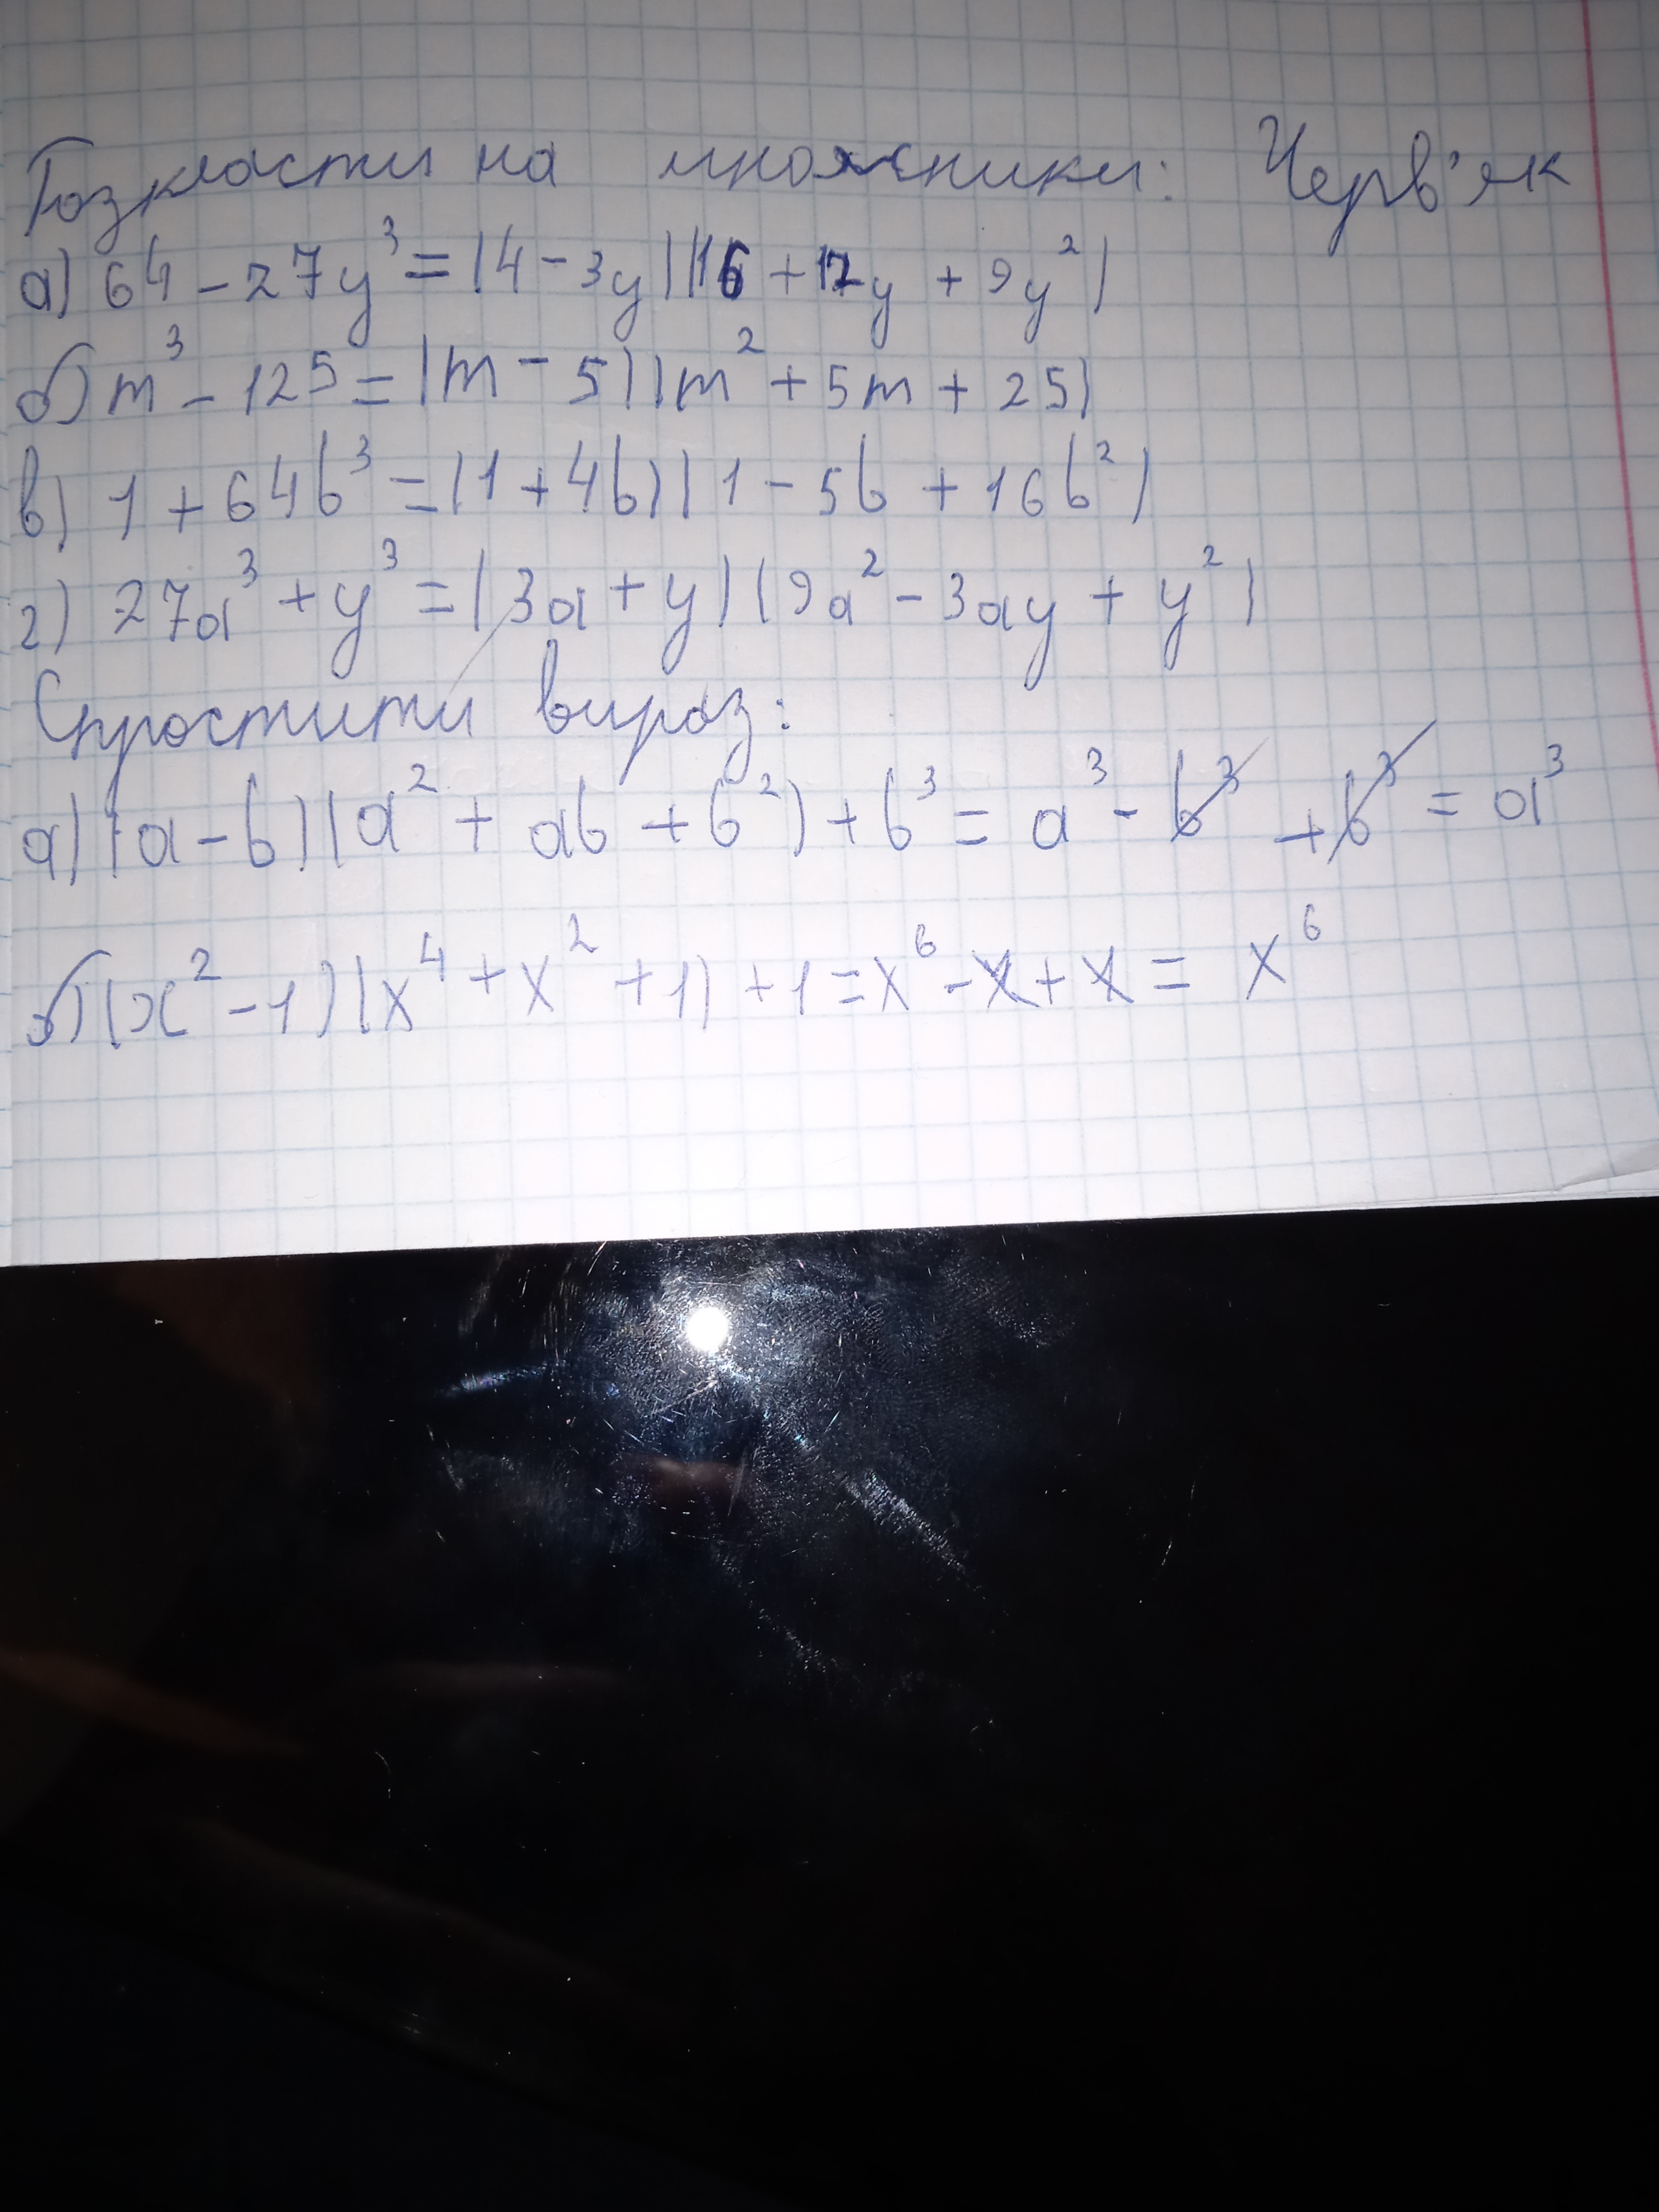 Розкласти на множники: Черв'як
а) 64 - 27y³ = (4 - 3y)(16 + 12y + 9y²)
б) m³ - 125 = (m - 5)(m² + 5m + 25)
в) 1 + 64b³ = (1 + 4b)(1 - 5b + 16b²)
г) 27a³ + y³ = (3a + y)(9a² - 3ay + y²)
Спростити вираз:
а) (a - b)(a² + ab + b²) + b³ = a³ - b³ + b³ = a³
б) (x² - 1)(x⁴ + x² + 1) + 1 = x⁶ - 1 + 1 = x⁶